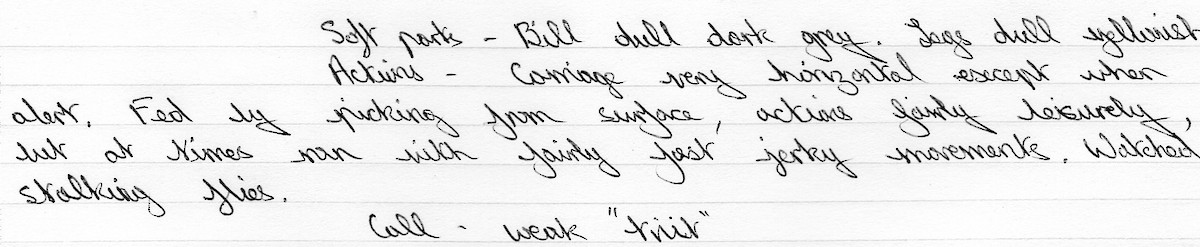 Soft parts - Bill dull dark grey. Legs dull yellowish
Actions - Carriage very horizontal except when
alert. Fed by picking from surface, actions fairly leisurely,
but at times ran with fairly fast jerky movements. Watched
stalking flies.
Call - weak "triit"